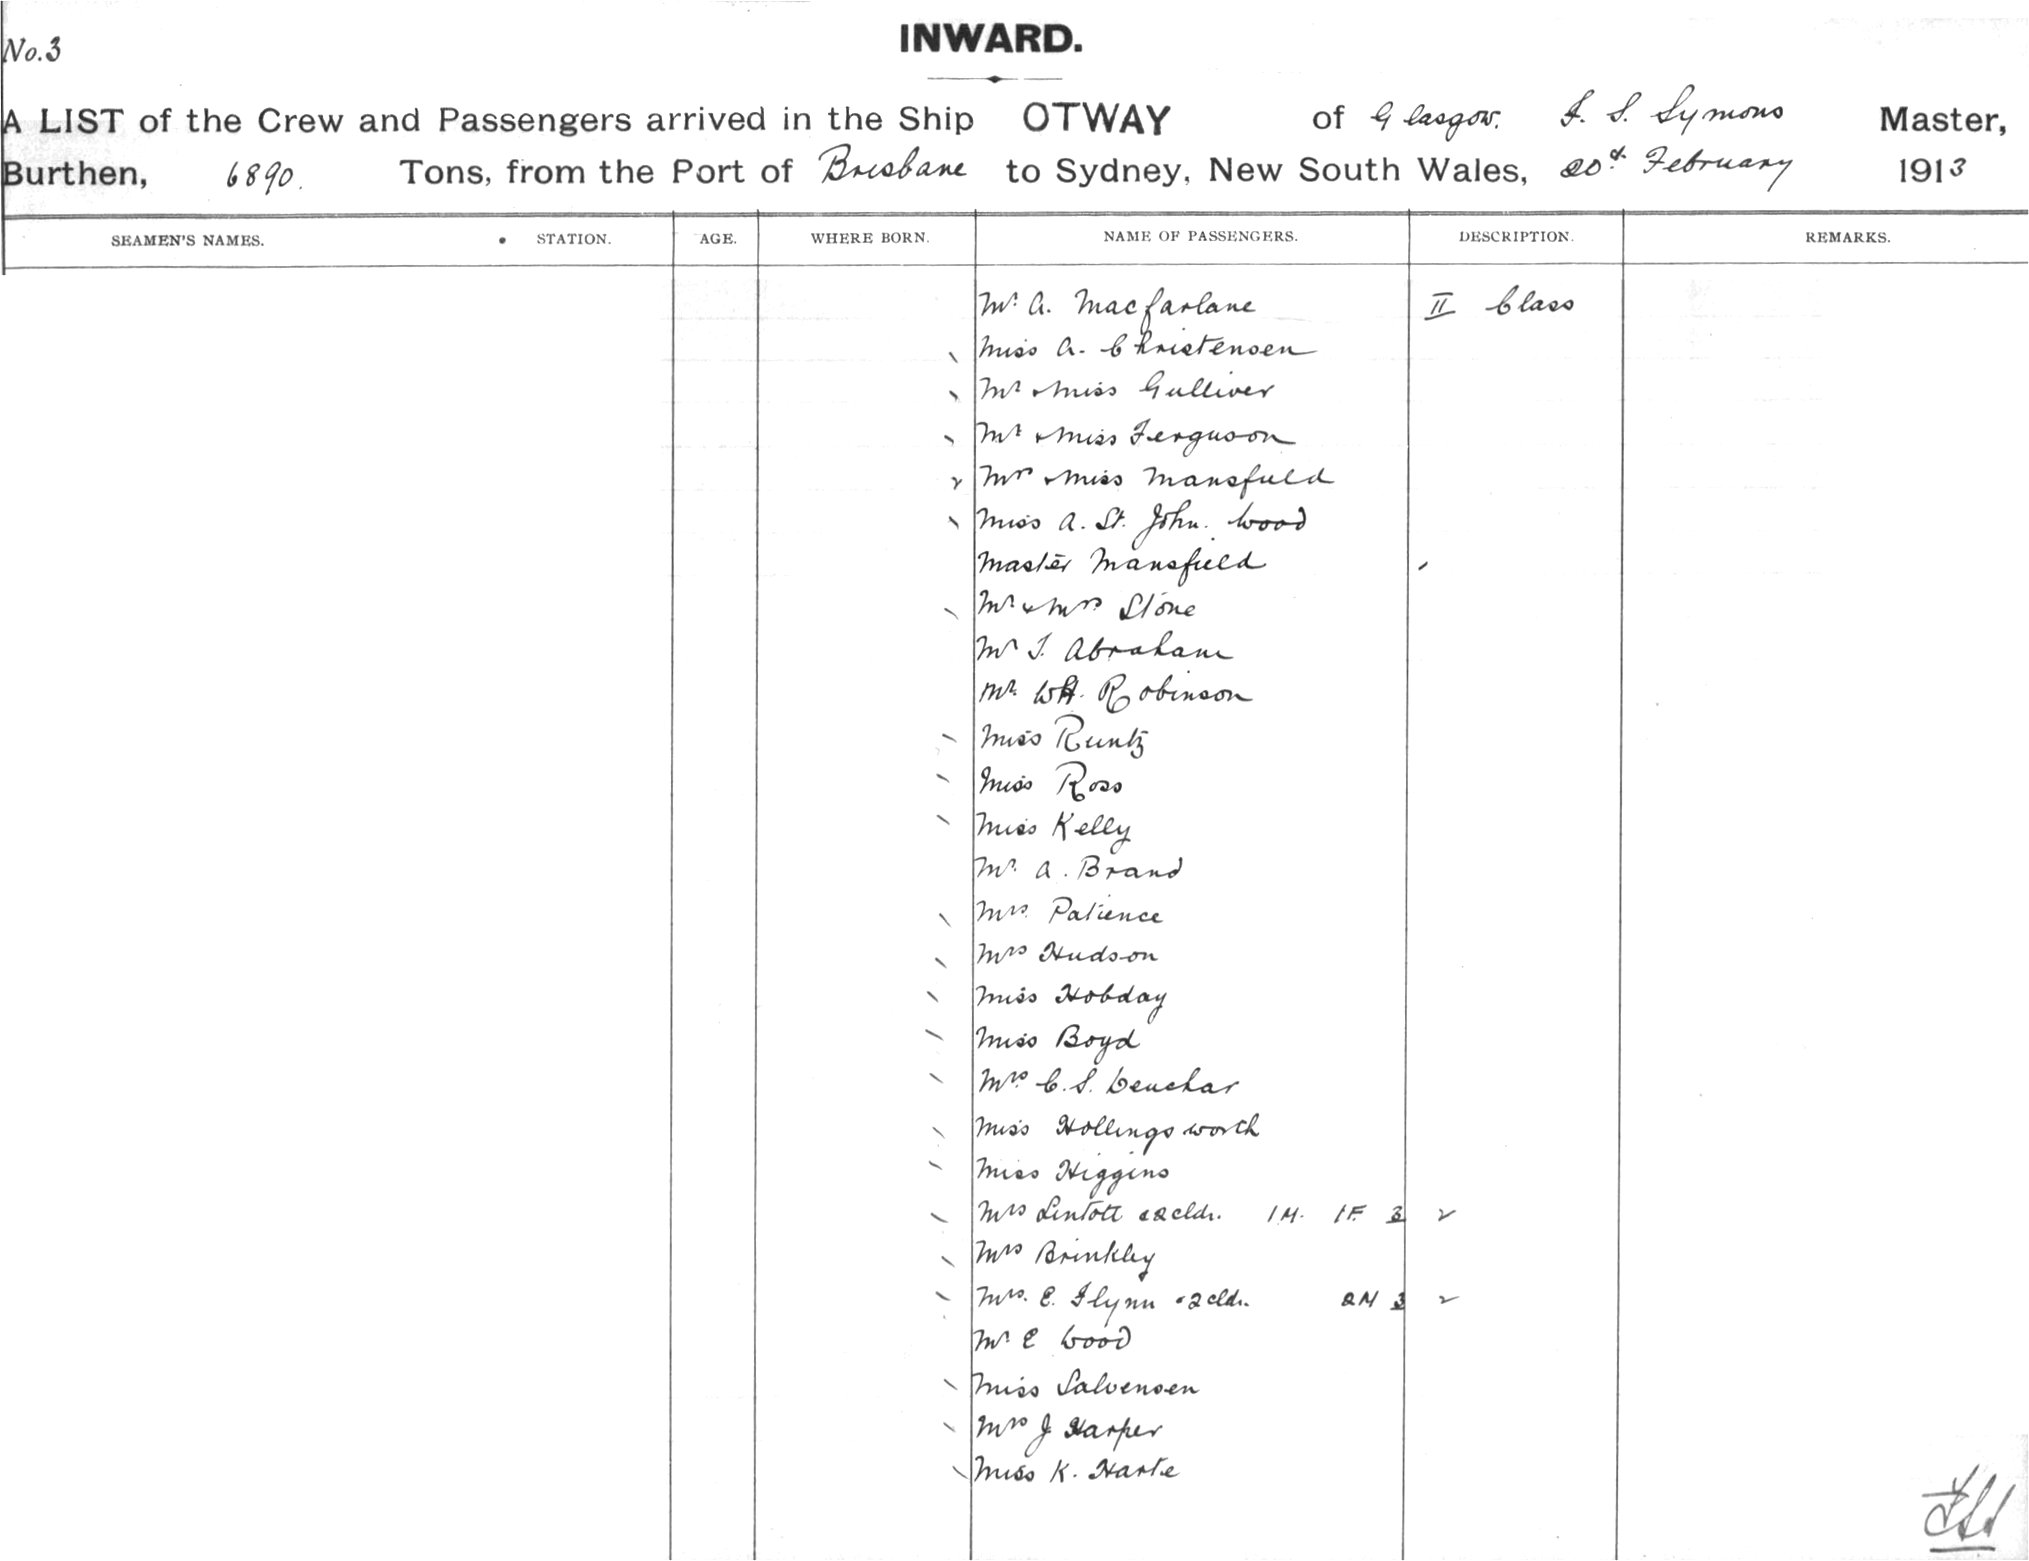 No. 3
INWARD.
A LIST of the Crew and Passengers arrived in the Ship OTWAY of Glasgow. F. S. Symons Master,
Burthen, 6890. Tons, from the Port of Brisbane to Sydney, New South Wales, 20th February 1913
SEAMEN'S NAMES. STATION. AGE. WHERE BORN. NAME OF PASSENGERS. DESCRIPTION. REMARKS.
Mr. A. Macfarlane II Class
Miss A. Christensen
Mr & Miss Gulliver
Mr & Miss Ferguson
Mrs & Miss Mansfield
Miss A. St. John. Wood
Master Mansfield
Mr & Mrs Stone
Mr J. Abraham
Mr. WH. Robinson
Miss Runtz
Miss Ross
Miss Kelly
Mr. A. Brand
Mrs. Patience
Mrs Hudson
Miss Hobday
Miss Boyd
Mrs. C. S. Deuchar
Miss Hollingsworth
Miss Higgins
Mrs Lintott & 2 cldr. 1 M. 1 F. 3
Mrs Brinkley
Mrs. E. Flynn & 2 cldr. 2 M 3
Mr E Wood
Miss Salvensen
Mrs J Harper
Miss K. Harte